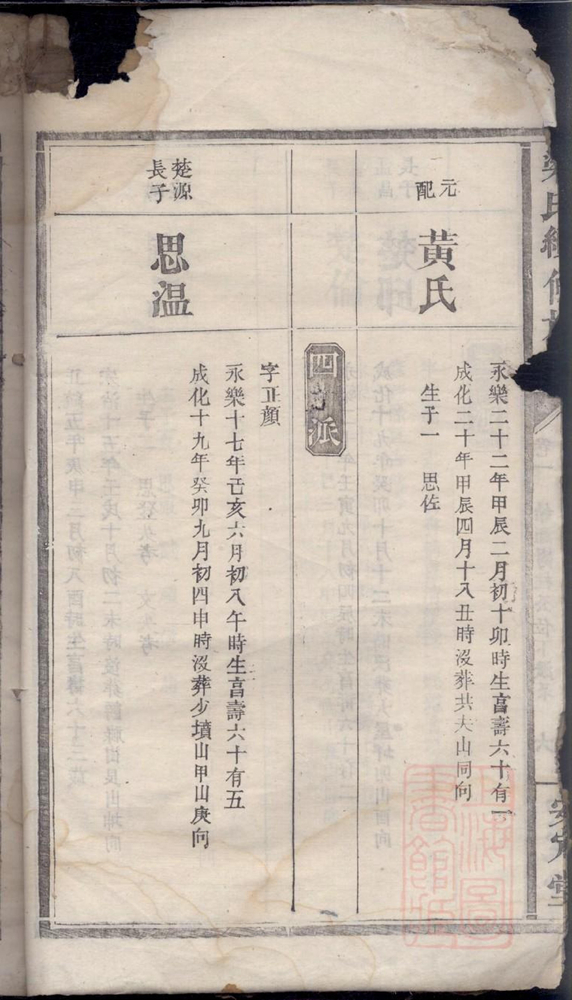 元配
黄氏
永樂二十二年甲辰二月初十卯時生亯壽六十有一
成化二十年甲辰四月十八丑時沒葬共夫山同向
生子一 思佐
四 派
楚源長子
思温
字正顏
永樂十七年己亥六月初八午時生亯壽六十有五
成化十九年癸卯九月初四申時沒葬少墳山甲山庚向